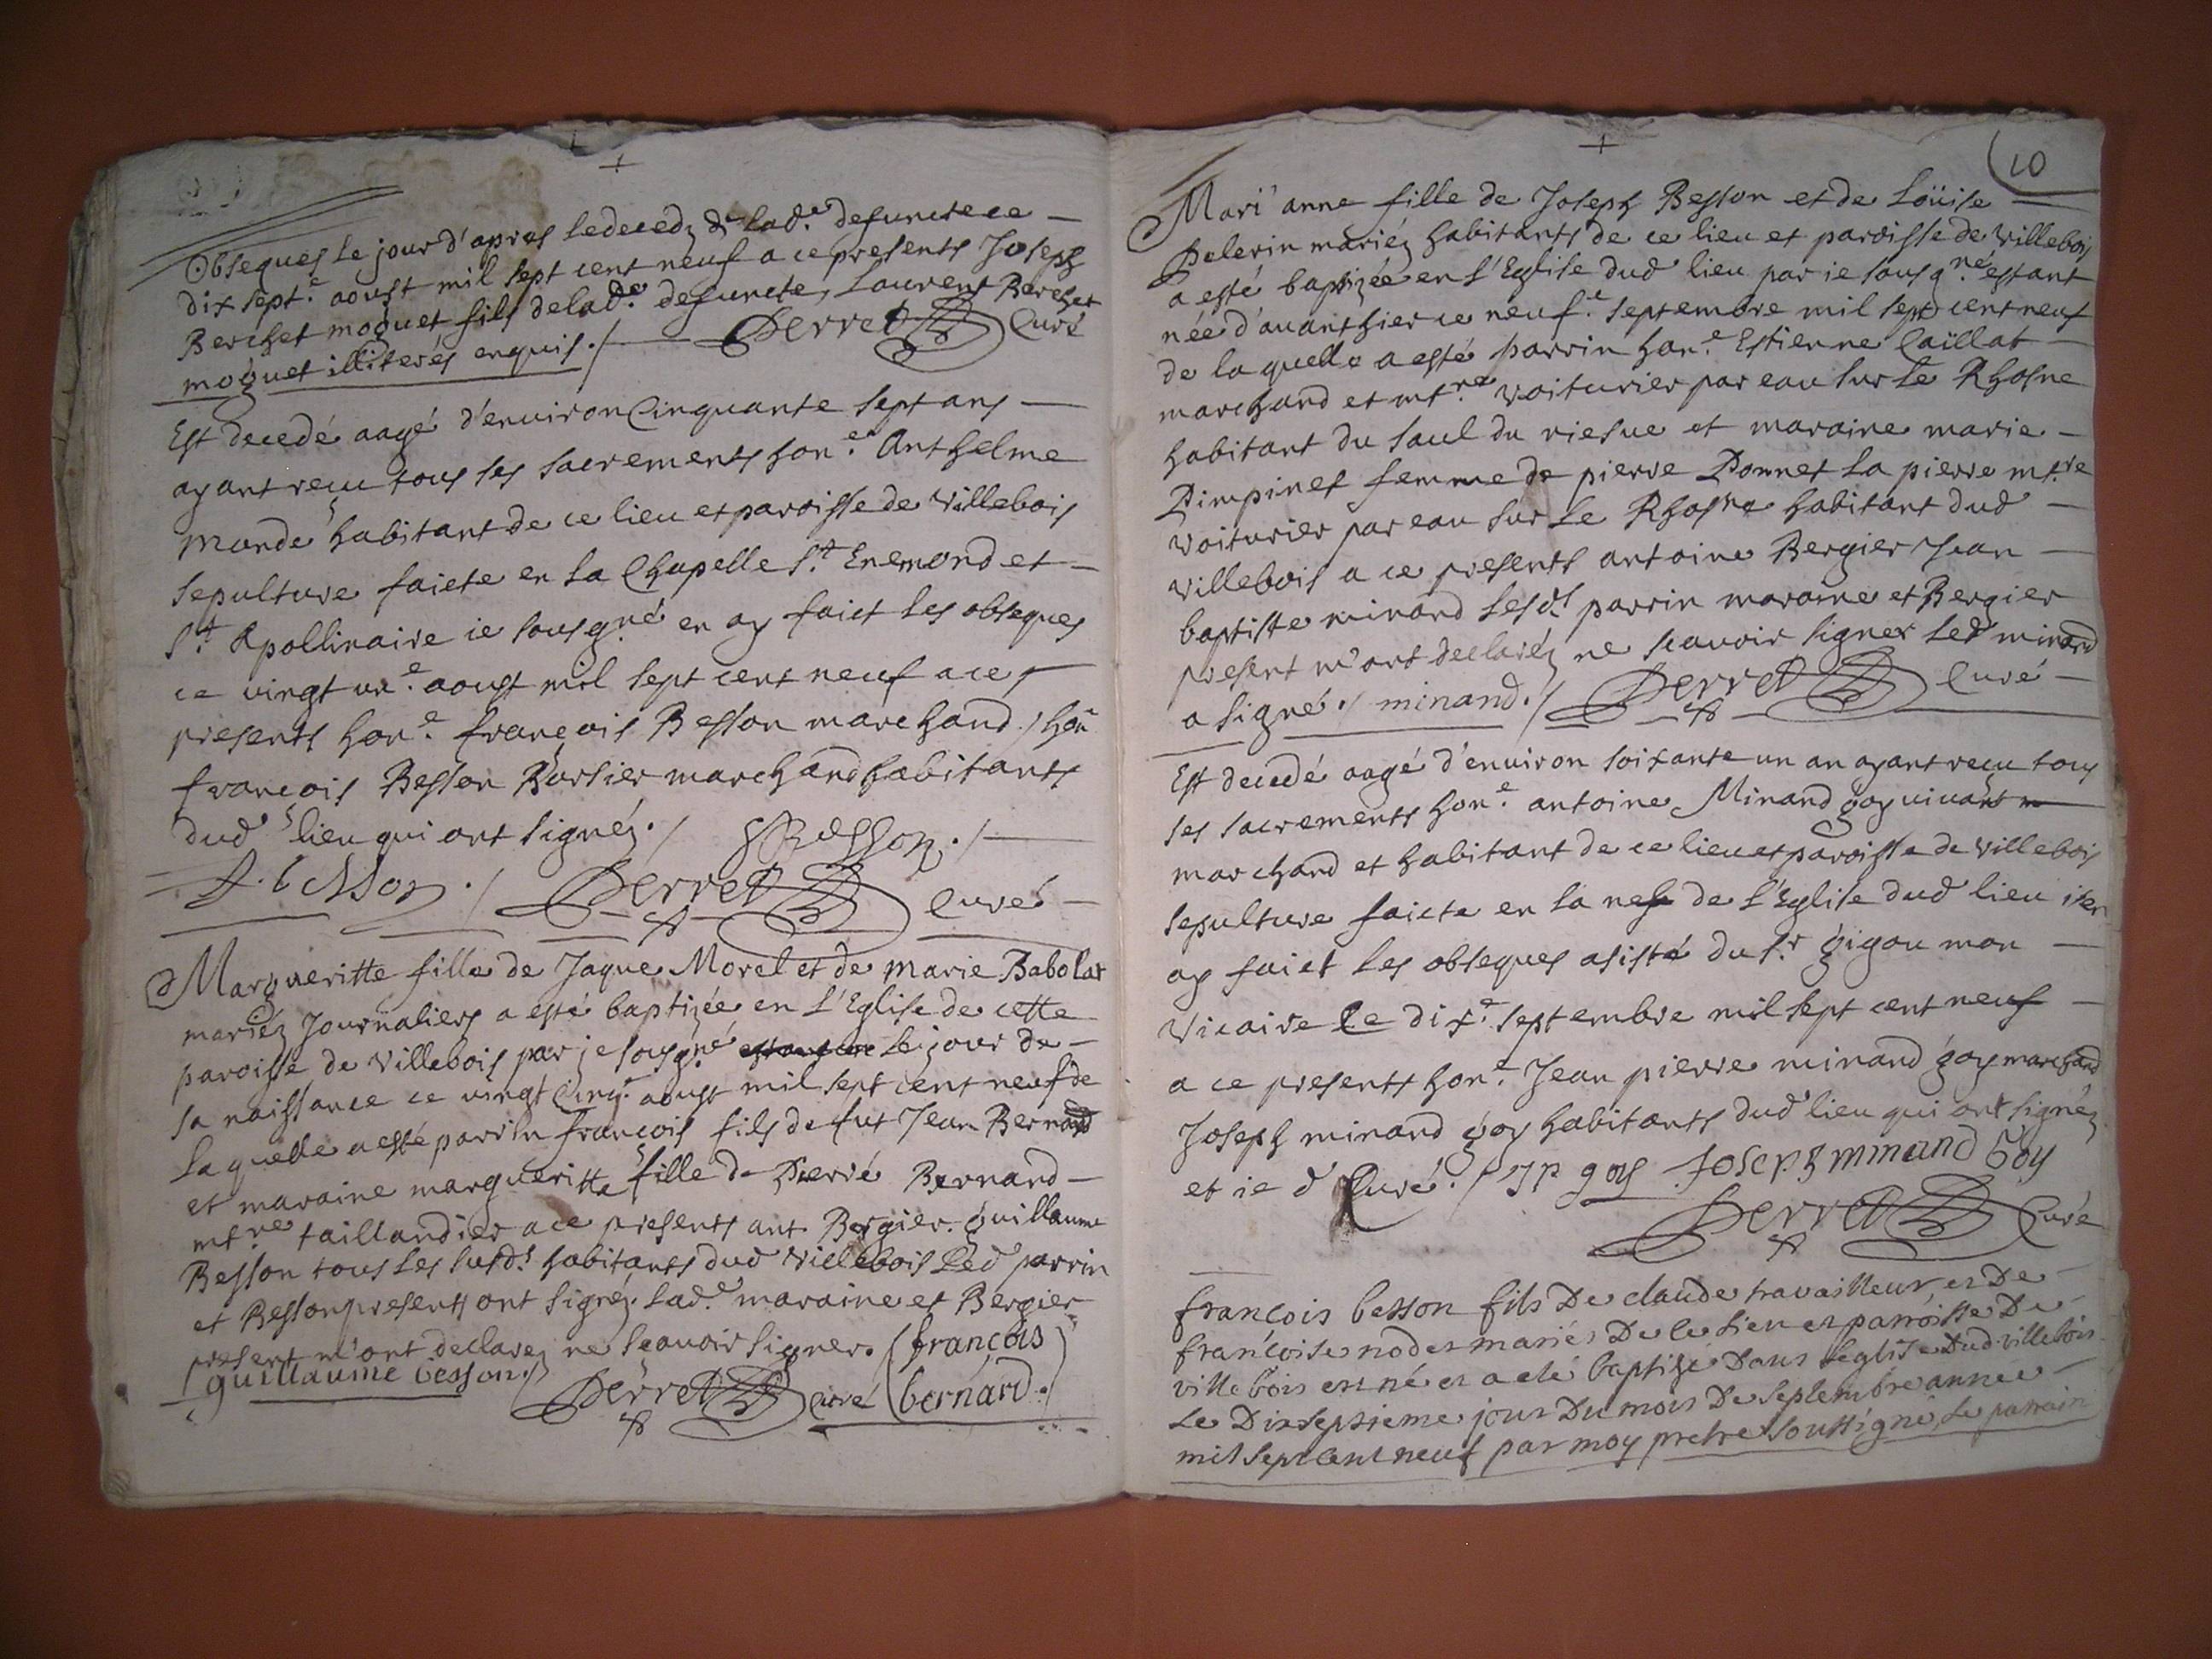 Obseques le jour d'apres le decedz de lad.e defuncte ce
dix sept.e aoust mil sept cent neuf a ce presents Joseph
Berchet moguet fils de lad.e defuncte, Laurent Berchet
moguet illiterés enquis ./ Perret Curé
Est decedé aagé d'environ Cinquante sept ans
ayant reçu tous ses sacrements hon.e Anthelme
Mandé habitant de ce lieu et paroisse de Villebois
sepulture faicte en la Chapelle S.t Enemond et
S.t Apollinaire ie sousg.né en ay faict les obseques
ce vingt un.e aoust mil sept cent neuf a ce
presents hon.e françois Besson marchand / hon.e
françois Besson Borsier marchand habitants
dud lieu qui ont signéz ./ f Besson ./
f. besson ./ Perret Curé
Margueritte fille de Jaque Morel et de marie Babolat
mariéz Journaliers a esté baptizée en l'Eglise de cette
paroisse de Villebois par je sousg.né le jour de
sa naissance ce vingt Cinq.e aoust mil sept cent neuf de
la quelle a esté parrin françois fils de fut Jean Bernard
et maraine margueritte fille de Pierre Bernard
mt.re taillandier a ce presents ant. Bergier. guillaume
Besson tous les susd.s habitants dud Villebois Led parrin
et Besson presents ont signéz. lad.e maraine et Bergier
present m'ont declarez ne sçavoir signer. (françois
guillaume besson ./ Perret Curé (bernard.)
10
Mari anne fille de Joseph Besson et de Loüise
Pelerin mariéz habitants de ce lieu et paroisse de Villebois
a esté baptizée en l'Eglise dud lieu par ie sousg.né estant
née d'avanthier ce neuf.e septembre mil sept cent neuf
de la quelle a esté parrin hon.e Estienne Caillat
marchand et mt.re voiturier par eau sur le Rhosne
habitant du saul du et maraine marie
Pimpinet femme de pierre Ponnet la pierre mt.re
voiturier par eau sur le Rhosne habitant dud
villebois a ce presents antoine Bergier Jean
baptiste minand lesd.s parrin maraine et Bergier
present m'ont declaréz ne scavoir signer led minand
a signé ./ minand ./ Perret Curé
Est decedé aagé d'environ soixante un an ayant reçu tous
ses sacrements hon.e antoine Minand goy vivant
marchand et habitant de ce lieu et paroisse de Villebois
sepulture faicte en la nef de l'Eglise dud lieu i'en
ay faict les obseques asisté du S.r gigou mon
Vicaire le dix.e septembre mil sept cent neuf
a ce presents hon.e Jean pierre minand goy marchand
Joseph minand goy habitants dud lieu qui ont signéz
et ie d Curé ./ J p goy Joseph minand Goy
Perret Curé
françois besson fils De claude travailleur, et De
françoise nodet mariés De ce lieu et parroisse De
villebois est né et a eté baptizé Dans leglise Dud villebois
Le Dixseptieme jour Du mois De septembre année
mil sept cent neuf par moy pretre soussigné, Le parrain